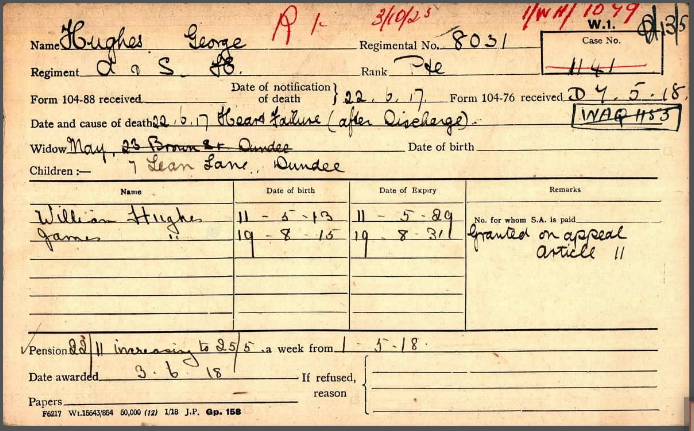 R 1. 3/10/25 1/WH/1079
W.1.
Name Hughes George Regimental No. 8031 Case No.
Regiment A & S. H. Rank Pte 1141
Form 104-88 received Date of notification of death } 22.6.17 Form 104-76 received D 7.5.18.
Date and cause of death 22.6.17 Heart Failure (after Discharge). WAQ 1153
Widow May, 23 Brown St. Dundee Date of birth
Children :— 7 Lean Lane, Dundee
Name Date of birth Date of Expiry Remarks
William Hughes 11 - 5 - 13 11 - 5 - 29 No. for whom S.A. is paid
James " 19 - 8 - 15 19 - 8 - 31 Granted on appeal
Article 11
Pension 22/11 increasing to 25/5 a week from 1 - 5 - 18.
Date awarded 3 . 6 . 18 If refused,
Papers reason
F6217 Wt.15643/864 50,000 (12) 1/18 J.P. Gp. 158